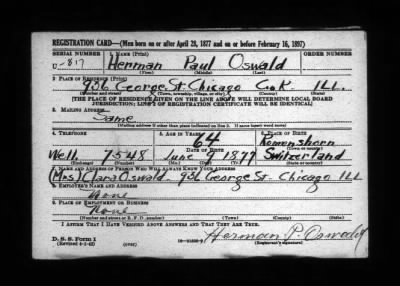 REGISTRATION CARD—(Men born on or after April 28, 1877 and on or before February 16, 1897)
SERIAL NUMBER 1. NAME (Print) ORDER NUMBER
U-817 Herman Paul Oswald
(First) (Middle) (Last)
2. PLACE OF RESIDENCE (Print)
936 George St. Chicago Cook ILL.
(Number and street) (Town, township, village, or city) (County) (State)
[THE PLACE OF RESIDENCE GIVEN ON THE LINE ABOVE WILL DETERMINE LOCAL BOARD
JURISDICTION; LINE 2 OF REGISTRATION CERTIFICATE WILL BE IDENTICAL]
3. MAILING ADDRESS
Same
[Mailing address if other than place indicated on line 2. If same insert word same]
4. TELEPHONE 5. AGE IN YEARS 6. PLACE OF BIRTH
64 Romanshorn
DATE OF BIRTH (Town or county)
Well 7548 June 9 1877 Switzerland
(Exchange) (Number) (Mo.) (Day) (Yr.) (State or country)
7. NAME AND ADDRESS OF PERSON WHO WILL ALWAYS KNOW YOUR ADDRESS
(Mrs) Clara Oswald - 936 George St- Chicago ILL
8. EMPLOYER'S NAME AND ADDRESS
None
9. PLACE OF EMPLOYMENT OR BUSINESS
None
(Number and street or R. F. D. number) (Town) (County) (State)
I AFFIRM THAT I HAVE VERIFIED ABOVE ANSWERS AND THAT THEY ARE TRUE.
D. S. S. Form 1
(Revised 4-1-42) (over) Herman P. Oswald
(Registrant's signature)